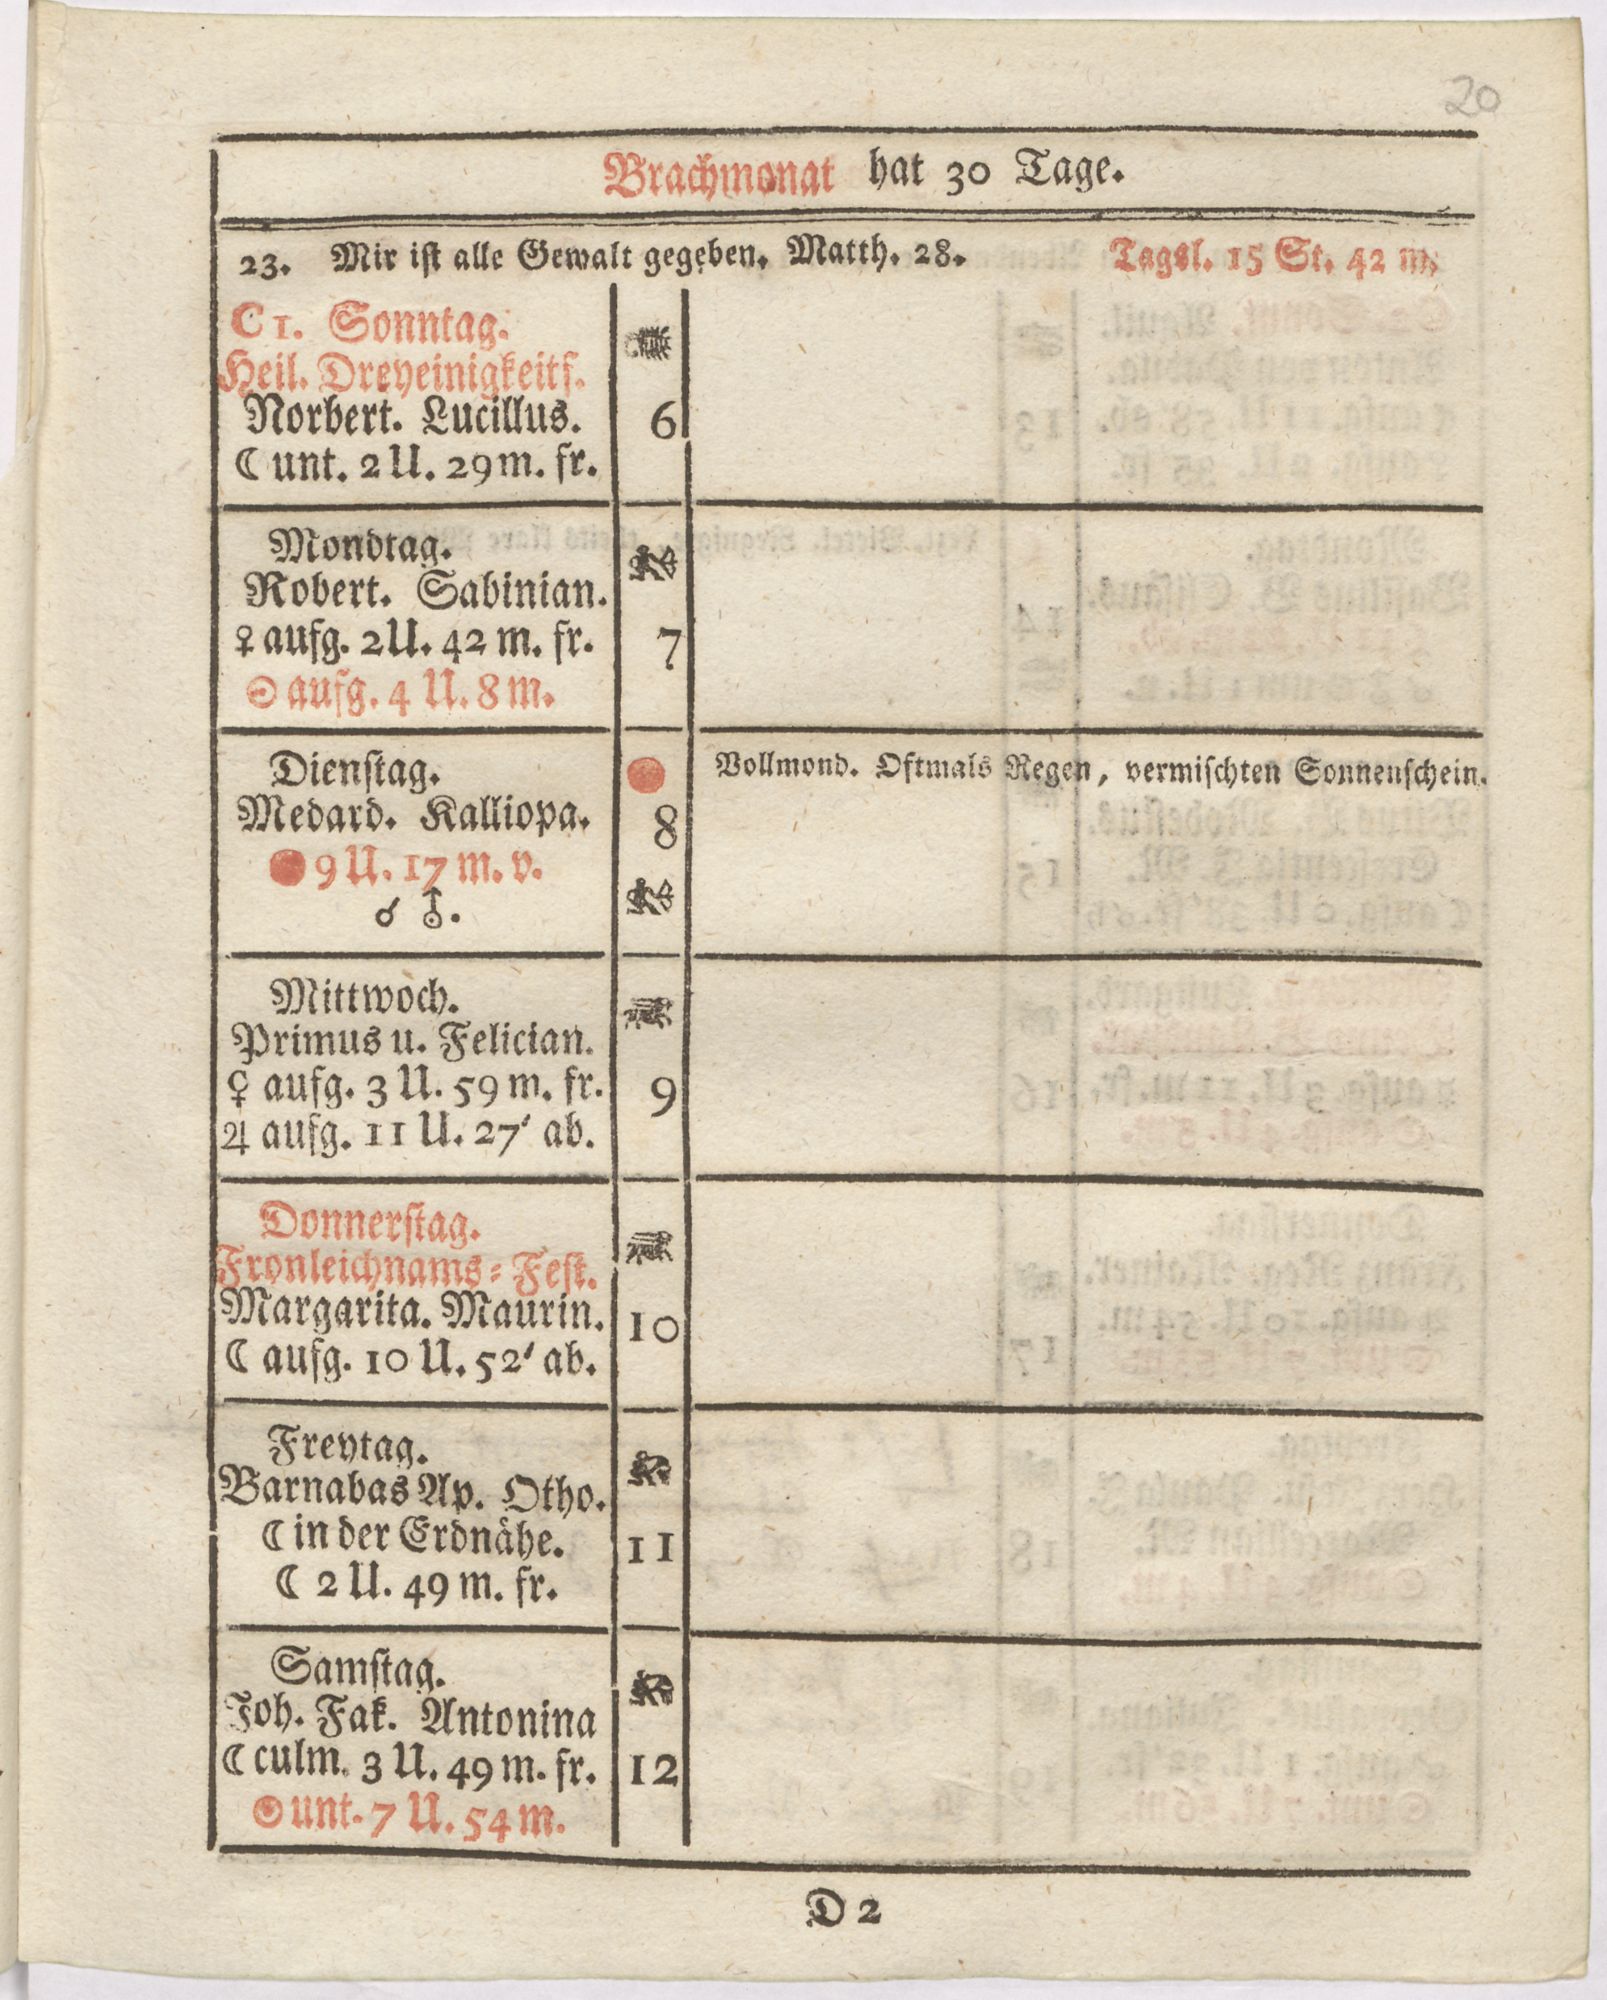 20
Brachmonat hat 30 Tage.
23. Mir ist alle Gewalt gegeben. Matth. 28. Tagsl. 15 St. 42 m.
C 1. Sonntag.
Heil. Dreyeinigkeitf.
Norbert. Lucillus. 6
☾ unt. 2 U. 29 m. fr.
Mondtag.
Robert. Sabinian.
♀ aufg. 2 U. 42 m. fr. 7
☉ aufg. 4 U. 8 m.
Dienstag. Vollmond. Oftmals Regen, vermischten Sonnenschein.
Medard. Kalliopa. 8
9 U. 17 m. v.
☌ ⛢.
Mittwoch.
Primus u. Felician.
♀ aufg. 3 U. 59 m. fr. 9
♃ aufg. 11 U. 27′ ab.
Donnerstag.
Fronleichnams-Fest.
Margarita. Maurin. 10
☾ aufg. 10 U. 52′ ab.
Freytag.
Barnabas Ap. Otho.
☾ in der Erdnähe. 11
☾ 2 U. 49 m. fr.
Samstag.
Joh. Fak. Antonina
☾ culm. 3 U. 49 m. fr. 12
☉ unt. 7 U. 54 m.
D 2